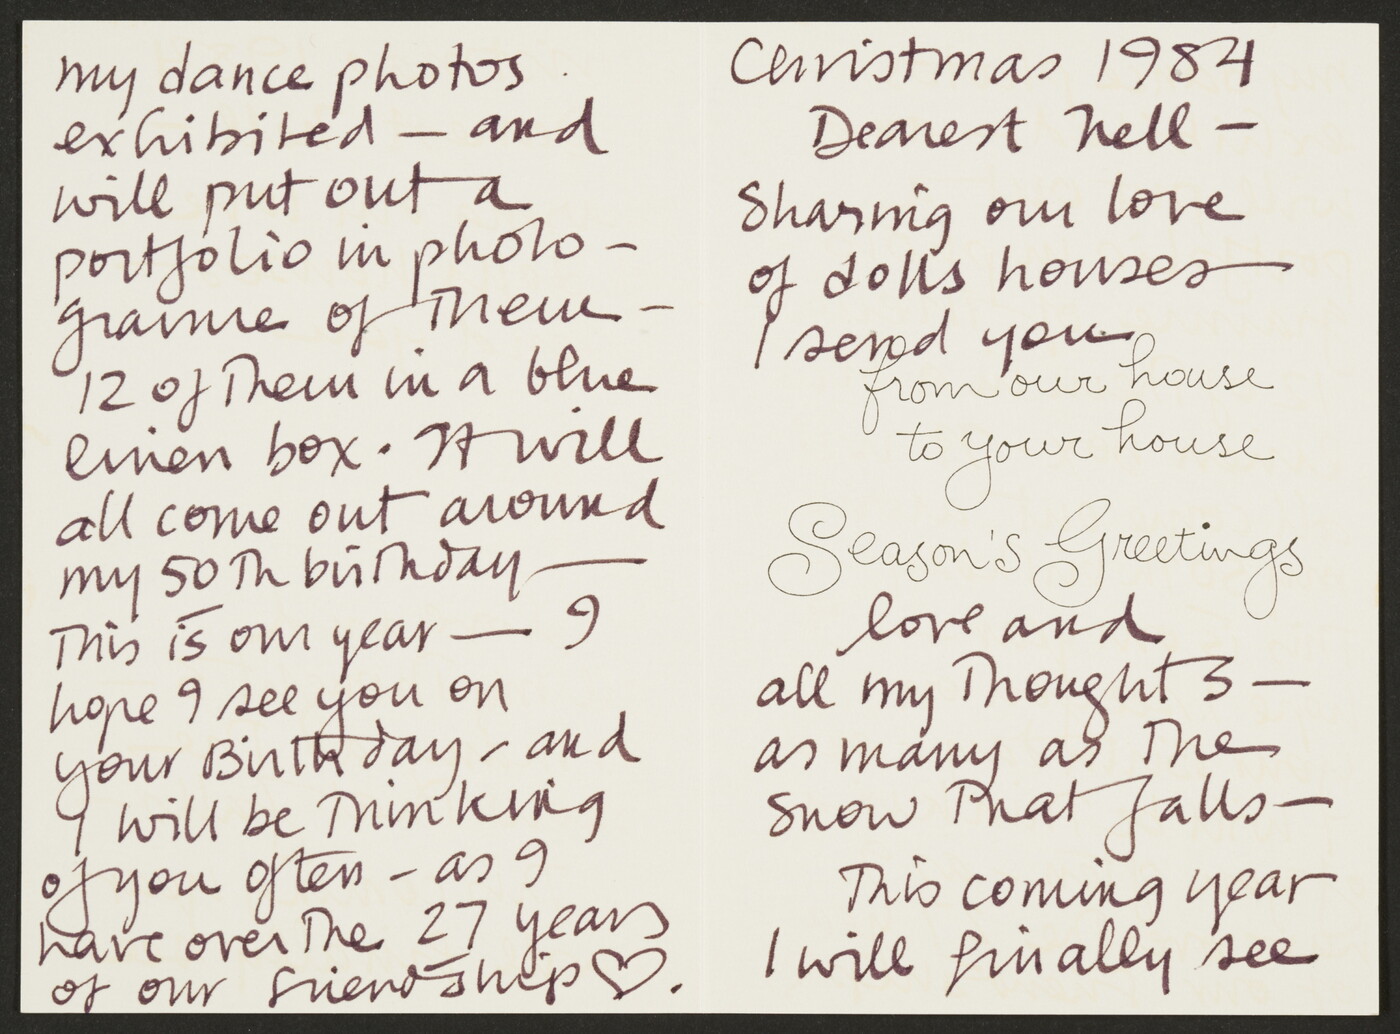 Christmas 1984
Dearest Nell —
Sharing our love
of dolls houses —
I send you
from our house
to your house
Season's Greetings
love and
all my Thoughts —
as many as The
Snow That falls —
This coming year
I will finally see
my dance photos
exhibited — and
will put out a
portfolio in photo -
gravure of Them —
12 of Them in a blue
linen box. It will
all come out around
my 50Th birThday —
This is our year — I
hope I see you on
your Birthday - and
I will be Thinking
of you often - as I
have over The 27 years
of our friendship ♡.